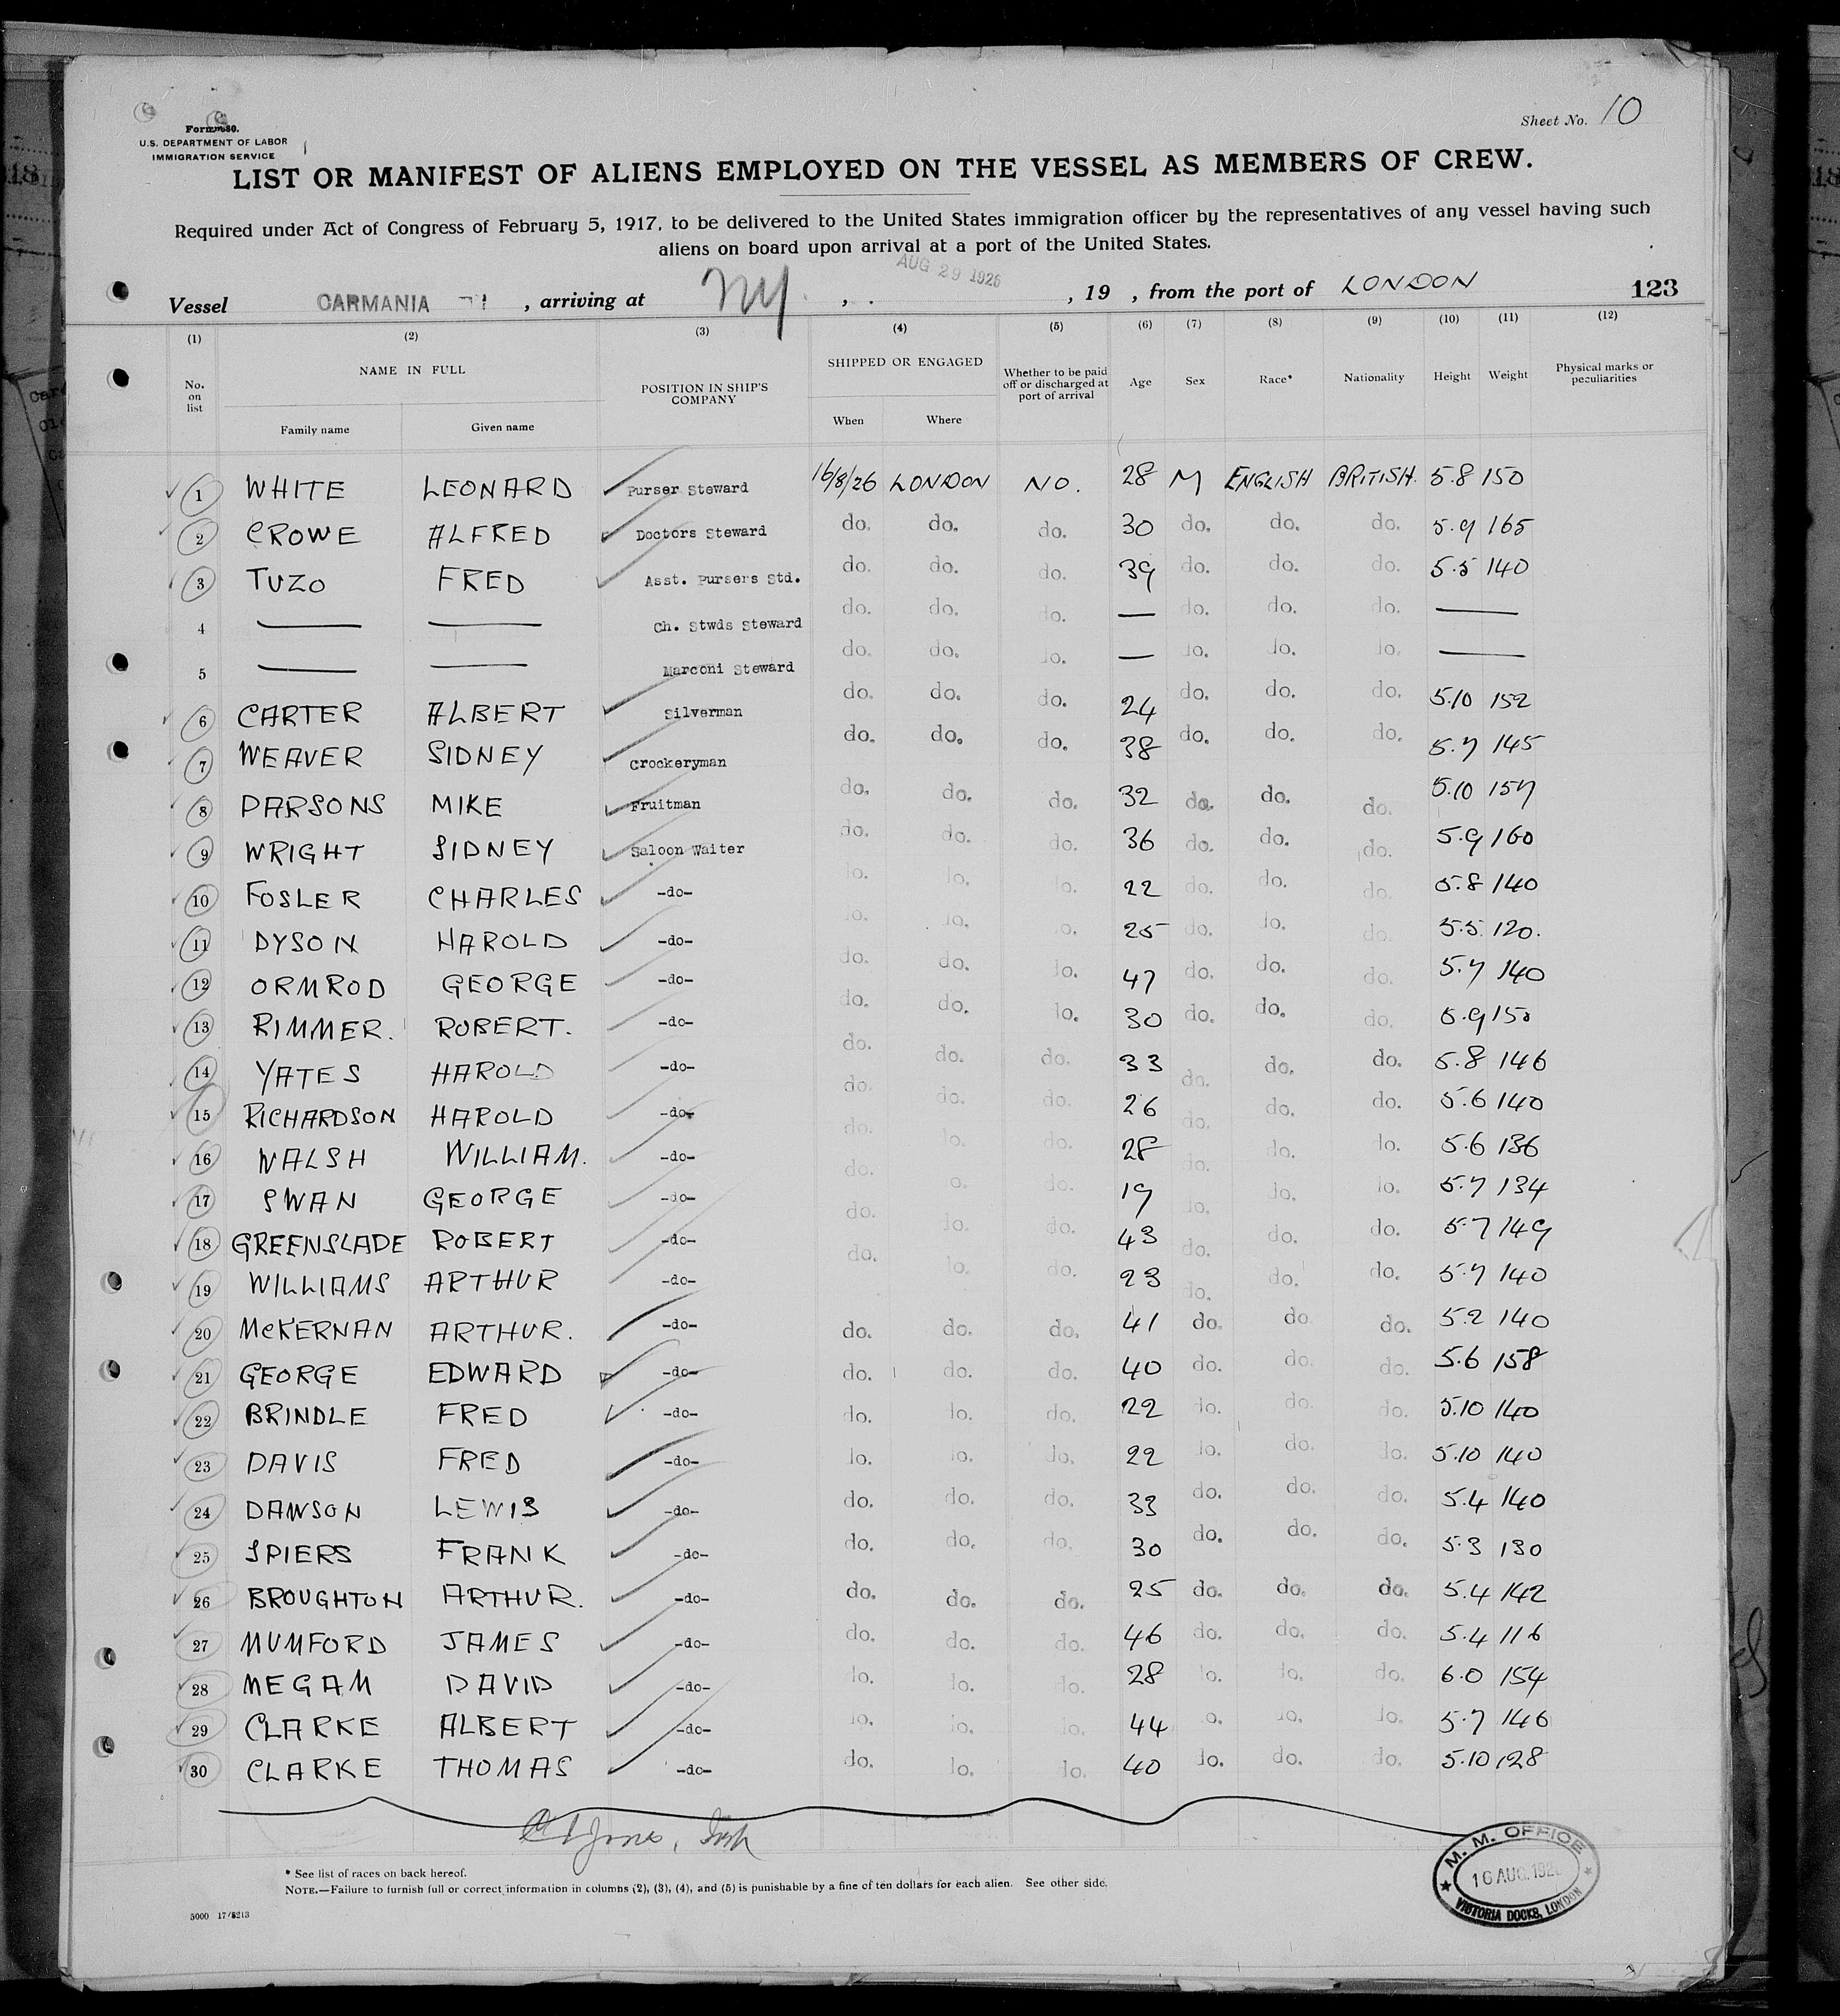 Sheet No. 10
U.S. DEPARTMENT OF LABOR
IMMIGRATION SERVICE
LIST OR MANIFEST OF ALIENS EMPLOYED ON THE VESSEL AS MEMBERS OF CREW.
Required under Act of Congress of February 5, 1917, to be delivered to the United States immigration officer by the representatives of any vessel having such
aliens on board upon arrival at a port of the United States.
AUG 29 1926
Vessel CARMANIA, arriving at NY, , 19 , from the port of LONDON 123
(1) (2) (3) (4) (5) (6) (7) (8) (9) (10) (11) (12)
No. on list NAME IN FULL POSITION IN SHIP'S COMPANY SHIPPED OR ENGAGED Whether to be paid off or discharged at port of arrival Age Sex Race* Nationality Height Weight Physical marks or peculiarities
Family name Given name When Where
1 WHITE LEONARD Purser Steward 16/8/26 LONDON NO. 28 M ENGLISH BRITISH. 5.8 150
2 CROWE ALFRED Doctors Steward do. do. do. 30 do. do. do. 5.9 165
3 TUZO FRED Asst. Pursers Std. do. do. do. 39 do. do. do. 5.5 140
4 — — Ch. Stwds Steward do. do. do. — do. do. do. —
5 — — Marconi Steward do. do. do. — do. do. do. —
6 CARTER ALBERT Silverman do. do. do. 24 do. do. do. 5.10 152
7 WEAVER SIDNEY Crockeryman do. do. do. 38 do. do. do. 5.7 145
8 PARSONS MIKE Fruitman do. do. do. 32 do. do. do. 5.10 157
9 WRIGHT SIDNEY Saloon Waiter do. do. do. 36 do. do. do. 5.9 160
10 FOSLER CHARLES -do- do. do. do. 22 do. do. do. 5.8 140
11 DYSON HAROLD -do- do. do. do. 25 do. do. do. 5.5. 120.
12 ORMROD GEORGE -do- do. do. do. 47 do. do. do. 5.7 140
13 RIMMER. ROBERT. -do- do. do. do. 30 do. do. do. 5.9 150
14 YATES HAROLD -do- do. do. do. 33 do. do. do. 5.8 146
15 RICHARDSON HAROLD -do- do. do. do. 26 do. do. do. 5.6 140
16 WALSH WILLIAM. -do- do. do. do. 28 do. do. do. 5.6 136
17 SWAN GEORGE -do- do. do. do. 19 do. do. do. 5.7 134
18 GREENSLADE ROBERT -do- do. do. do. 43 do. do. do. 5.7 149
19 WILLIAMS ARTHUR -do- do. do. do. 23 do. do. do. 5.7 140
20 McKERNAN ARTHUR. -do- do. do. do. 41 do. do. do. 5.2 140
21 GEORGE EDWARD -do- do. do. do. 40 do. do. do. 5.6 158
22 BRINDLE FRED -do- do. do. do. 22 do. do. do. 5.10 140
23 DAVIS FRED -do- do. do. do. 22 do. do. do. 5.10 140
24 DAWSON LEWIS -do- do. do. do. 33 do. do. do. 5.4 140
25 SPIERS FRANK -do- do. do. do. 30 do. do. do. 5.3 130
26 BROUGHTON ARTHUR. -do- do. do. do. 25 do. do. do. 5.4 142
27 MUMFORD JAMES -do- do. do. do. 46 do. do. do. 5.4 116
28 MEGAM DAVID -do- do. do. do. 28 do. do. do. 6.0 154
29 CLARKE ALBERT -do- do. do. do. 44 do. do. do. 5.7 146
30 CLARKE THOMAS -do- do. do. do. 40 do. do. do. 5.10 128
* See list of races on back hereof.
NOTE.—Failure to furnish full or correct information in columns (2), (3), (4), and (5) is punishable by a fine of ten dollars for each alien. See other side.
M. M. OFFICE
16 AUG. 192
VICTORIA DOCKS, LONDON